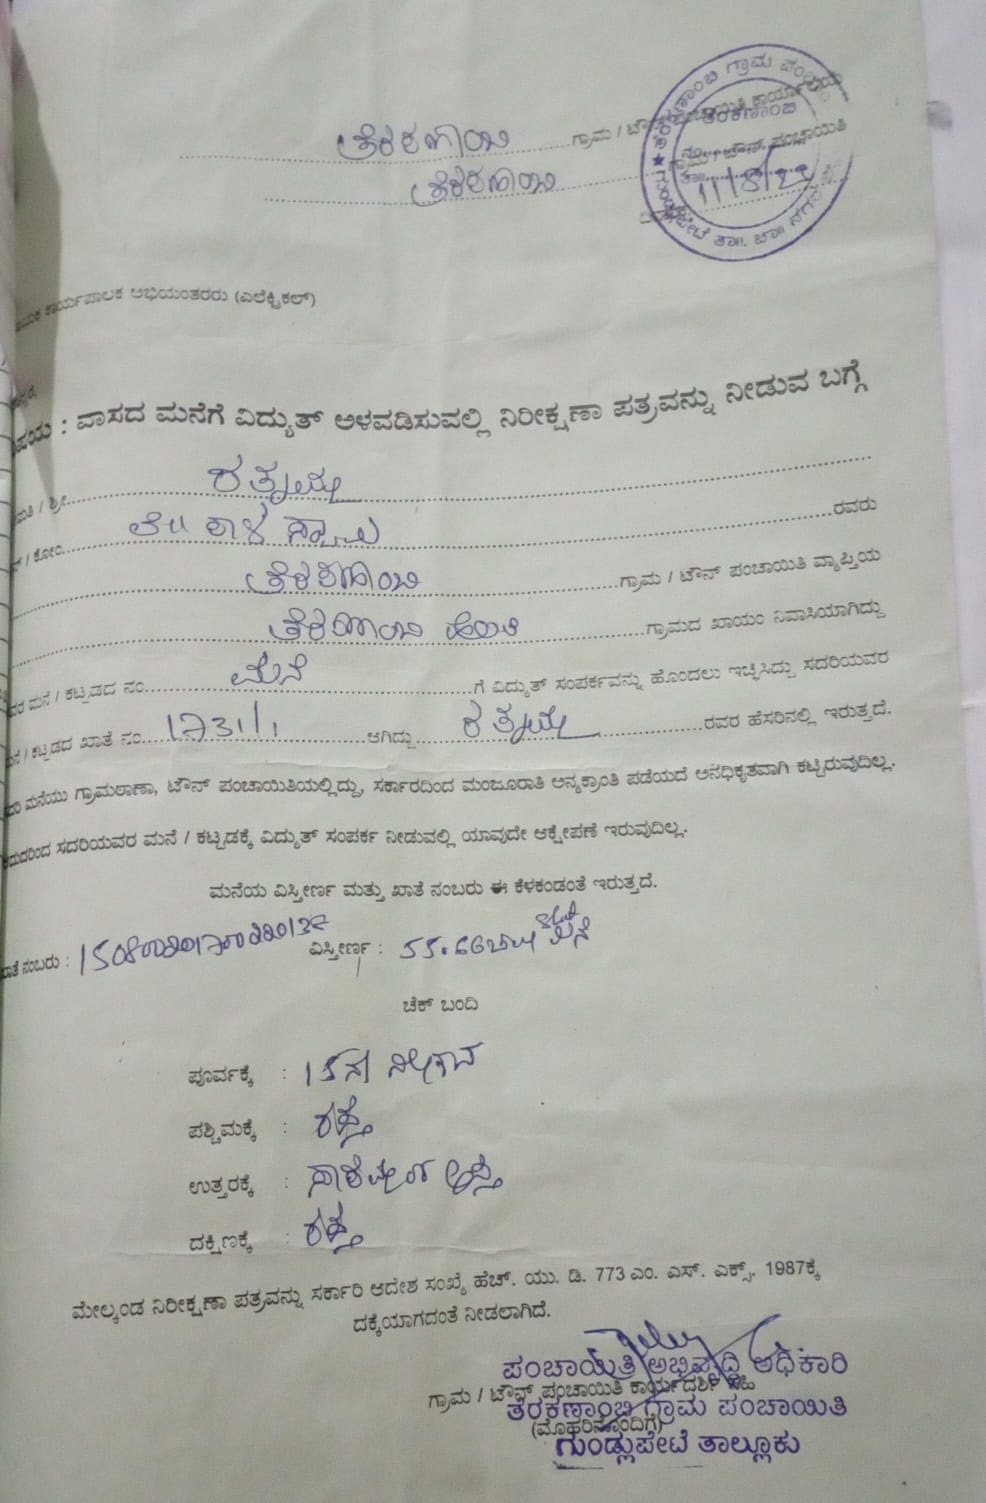 ತೆರಕಣಾಂಬಿ ಗ್ರಾಮ / ಟೌನ್ ಪಂಚಾಯಿತಿ ಕಾರ್ಯಾಲಯ
ತೆರಕಣಾಂಬಿ ಗ್ರಾಮ / ಟೌನ್. ಪಂಚಾಯಿತಿ
ಗ್ರಾಮ ಪಂಚಾಯಿತಿ
ತೆರಕಣಾಂಬಿ
ನಂ.
ತಾ.
11/8/22
ಕಾರ್ಯಪಾಲಕ ಅಭಿಯಂತರರು (ಎಲೆಕ್ಟ್ರಿಕಲ್)
: ವಾಸದ ಮನೆಗೆ ವಿದ್ಯುತ್ ಅಳವಡಿಸುವಲ್ಲಿ ನಿರೀಕ್ಷಣಾ ಪತ್ರವನ್ನು ನೀಡುವ ಬಗ್ಗೆ
/ ಶ್ರೀ ರತ್ನಮ್ಮ
/ ಕೋಂ ರವರು
ತೆರಕಣಾಂಬಿ ಗ್ರಾಮ / ಟೌನ್ ಪಂಚಾಯಿತಿ ವ್ಯಾಪ್ತಿಯ
ತೆರಕಣಾಂಬಿ ಗ್ರಾಮದ ಖಾಯಂ ನಿವಾಸಿಯಾಗಿದ್ದು
ಮನೆ / ಕಟ್ಟಡದ ನಂ. ಮನೆ ಗೆ ವಿದ್ಯುತ್ ಸಂಪರ್ಕವನ್ನು ಹೊಂದಲು ಇಚ್ಛಿಸಿದ್ದು ಸದರಿಯವರ
/ ಕಟ್ಟಡದ ಖಾತೆ ನಂ. 1731/1 ಆಗಿದ್ದು ರತ್ನಮ್ಮ ರವರ ಹೆಸರಿನಲ್ಲಿ ಇರುತ್ತದೆ.
ಮನೆಯು ಗ್ರಾಮಠಾಣಾ, ಟೌನ್ ಪಂಚಾಯಿತಿಯಲ್ಲಿದ್ದು, ಸರ್ಕಾರದಿಂದ ಮಂಜೂರಾತಿ ಅನ್ಯಕ್ರಾಂತಿ ಪಡೆಯದೆ ಅನಧಿಕೃತವಾಗಿ ಕಟ್ಟಿರುವುದಿಲ್ಲ.
ಸದರಿಯವರ ಮನೆ / ಕಟ್ಟಡಕ್ಕೆ ವಿದ್ಯುತ್ ಸಂಪರ್ಕ ನೀಡುವಲ್ಲಿ ಯಾವುದೇ ಆಕ್ಷೇಪಣೆ ಇರುವುದಿಲ್ಲ.
ಮನೆಯ ವಿಸ್ತೀರ್ಣ ಮತ್ತು ಖಾತೆ ನಂಬರು ಈ ಕೆಳಕಂಡಂತೆ ಇರುತ್ತದೆ.
ನಂಬರು : ವಿಸ್ತೀರ್ಣ : 55.66 ಮನೆ
ಚೆಕ್ ಬಂದಿ
ಪೂರ್ವಕ್ಕೆ :
ಪಶ್ಚಿಮಕ್ಕೆ : ರಸ್ತೆ
ಉತ್ತರಕ್ಕೆ :
ದಕ್ಷಿಣಕ್ಕೆ : ರಸ್ತೆ
ಮೇಲ್ಕಂಡ ನಿರೀಕ್ಷಣಾ ಪತ್ರವನ್ನು ಸರ್ಕಾರಿ ಆದೇಶ ಸಂಖ್ಯೆ ಹೆಚ್. ಯು. ಡಿ. 773 ಎಂ. ಎಸ್. ಎಕ್ಸ್. 1987ಕ್ಕೆ
ದಕ್ಕೆಯಾಗದಂತೆ ನೀಡಲಾಗಿದೆ.
ಪಂಚಾಯಿತಿ ಅಭಿವೃದ್ಧಿ ಅಧಿಕಾರಿ
ಗ್ರಾಮ / ಟೌನ್ ಪಂಚಾಯಿತಿ ಕಾರ್ಯದರ್ಶಿ ಸಹಿ
ತೆರಕಣಾಂಬಿ ಗ್ರಾಮ ಪಂಚಾಯಿತಿ
(ಮೊಹರಿನೊಂದಿಗೆ)
ಗುಂಡ್ಲುಪೇಟೆ ತಾಲ್ಲೂಕು